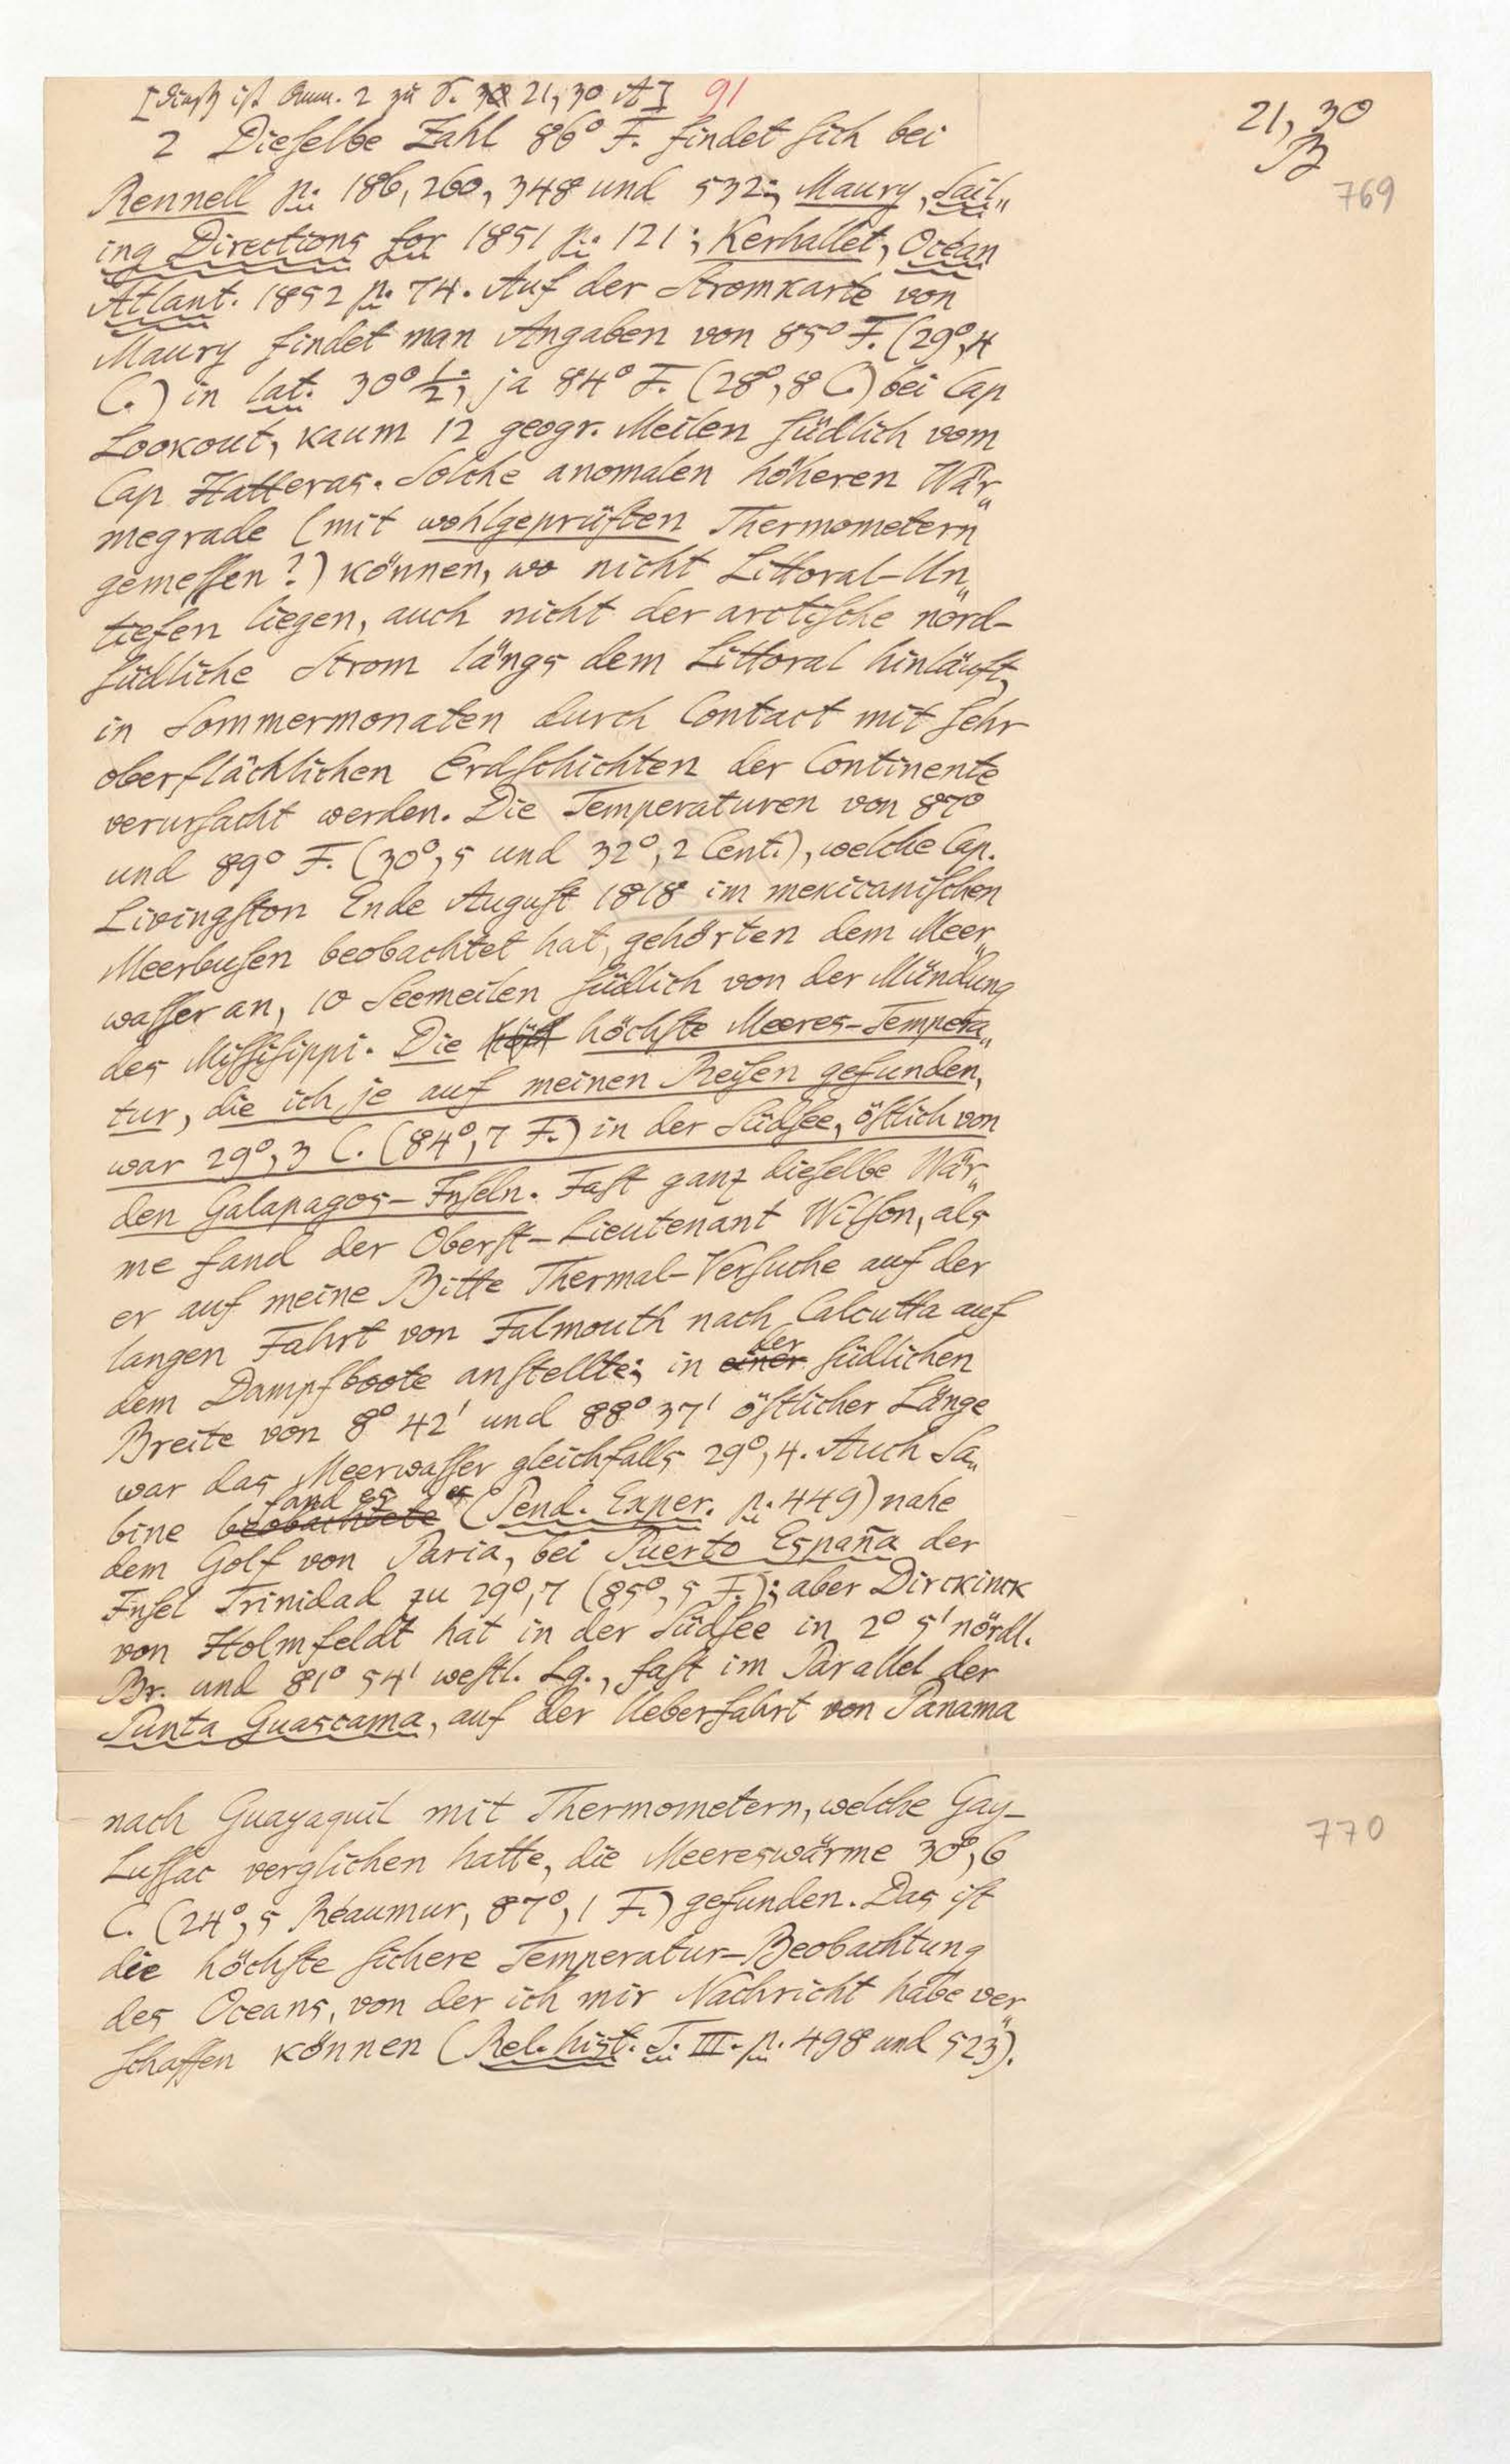 [dieß ist Anm. 2 zu S. 21,30 A] 91
21,30
B
769
2 Dieselbe Zahl 86° F. findet sich bei
Rennell p. 186, 260, 348 und 532; Maury, Sail„
ing Directions for 1851 p. 121; Kerhallet, Océan
Atlant. 1852 p. 74. Auf der Stromkarte von
Maury findet man Angaben von 85° F. (29°,4
C.) in lat. 30° ½; ja 84° F. (28°,8 C.) bei Cap
Lookout, kaum 12 geogr. Meilen südlich vom
Cap Hatteras. Solche anomalen höheren Wär„
megrade (mit wohlgeprüften Thermometern
gemessen?) können, wo nicht Littoral-Un„
tiefen liegen, auch nicht der arctische nord-
südliche Strom längs dem Littoral hinläuft,
in Sommermonaten durch Contact mit sehr
oberflächlichen Erdschichten der Continente
verursacht werden. Die Temperaturen von 87°
und 89° F. (30°,5 und 32°,2 Cent.), welche Cap.
Livingston Ende August 1818 im mexicanischen
Meerbusen beobachtet hat, gehörten dem Meer„
wasser an, 10 Seemeilen südlich von der Mündung
des Missisippi. Die höchste Meeres-Tempera„
tur, die ich je auf meinen Reisen gefunden,
war 29°,3 C. (84°,7 F.) in der Südsee, östlich von
den Galapagos-Inseln. Fast ganz dieselbe Wär„
me fand der Oberst-Lieutenant Wilson, als
er auf meine Bitte Thermal-Versuche auf der
langen Fahrt von Falmouth nach Calcutta auf
dem Dampfboote anstellte; in einer der südlichen
Breite von 8° 42' und 88° 37' östlicher Länge
war das Meerwasser gleichfalls 29°,4. Auch Sa„
bine beobachtete fand es (Pend. Exper. p. 449) nahe
dem Golf von Paria, bei Puerto España der
Insel Trinidad zu 29°,7 (85°,5 F.); aber Dirckinck
von Holmfeldt hat in der Südsee in 2° 5' nördl.
Br. und 81° 54' westl. Lg., fast im Parallel der
Punta Guascama, auf der Ueberfahrt von Panama
770
nach Guayaquil mit Thermometern, welche Gay-
Lussac verglichen hatte, die Meereswärme 30°,6
C. (24°,5 Réaumur, 87°,1 F.) gefunden. Das ist
die höchste sichere Temperatur-Beobachtung
des Oceans, von der ich mir Nachricht habe ver„
schaffen können (Rel. hist. T. III. p. 498 und 523).